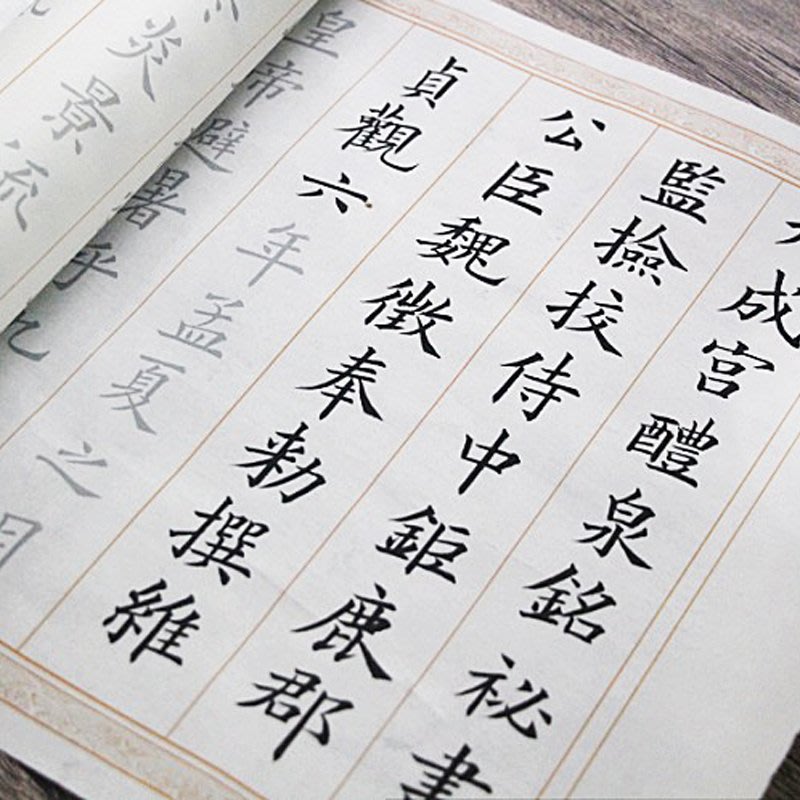 成宮醴泉銘祕書
監撿挍侍中鉅鹿郡
公臣魏徵奉勑撰維
貞觀六年孟夏之月
皇帝避暑乎九
炎景流